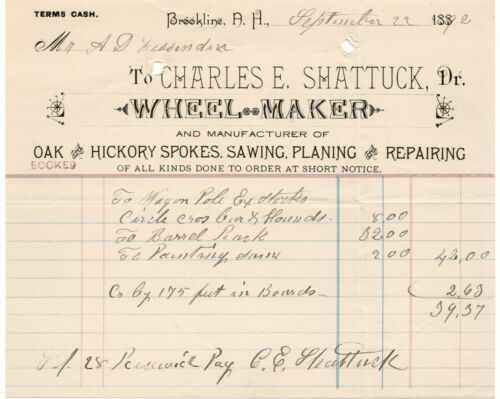 TERMS CASH.
Brookline, N. H., September 22 1892
Mr A D Fessenden
To CHARLES E. SHATTUCK, Dr.
WHEEL-MAKER
AND MANUFACTURER OF
OAK and HICKORY SPOKES, SAWING, PLANING and REPAIRING
OF ALL KINDS DONE TO ORDER AT SHORT NOTICE.
BOOKED
To Wagon Pole Ex
Circle cros bar & Hounds 8.00
To Barrel Rack 32.00
To Painting same 2 00 42,00
Cr by 175 feet in Boards 2,63
39,37
28 Pay C. E. Shattuck